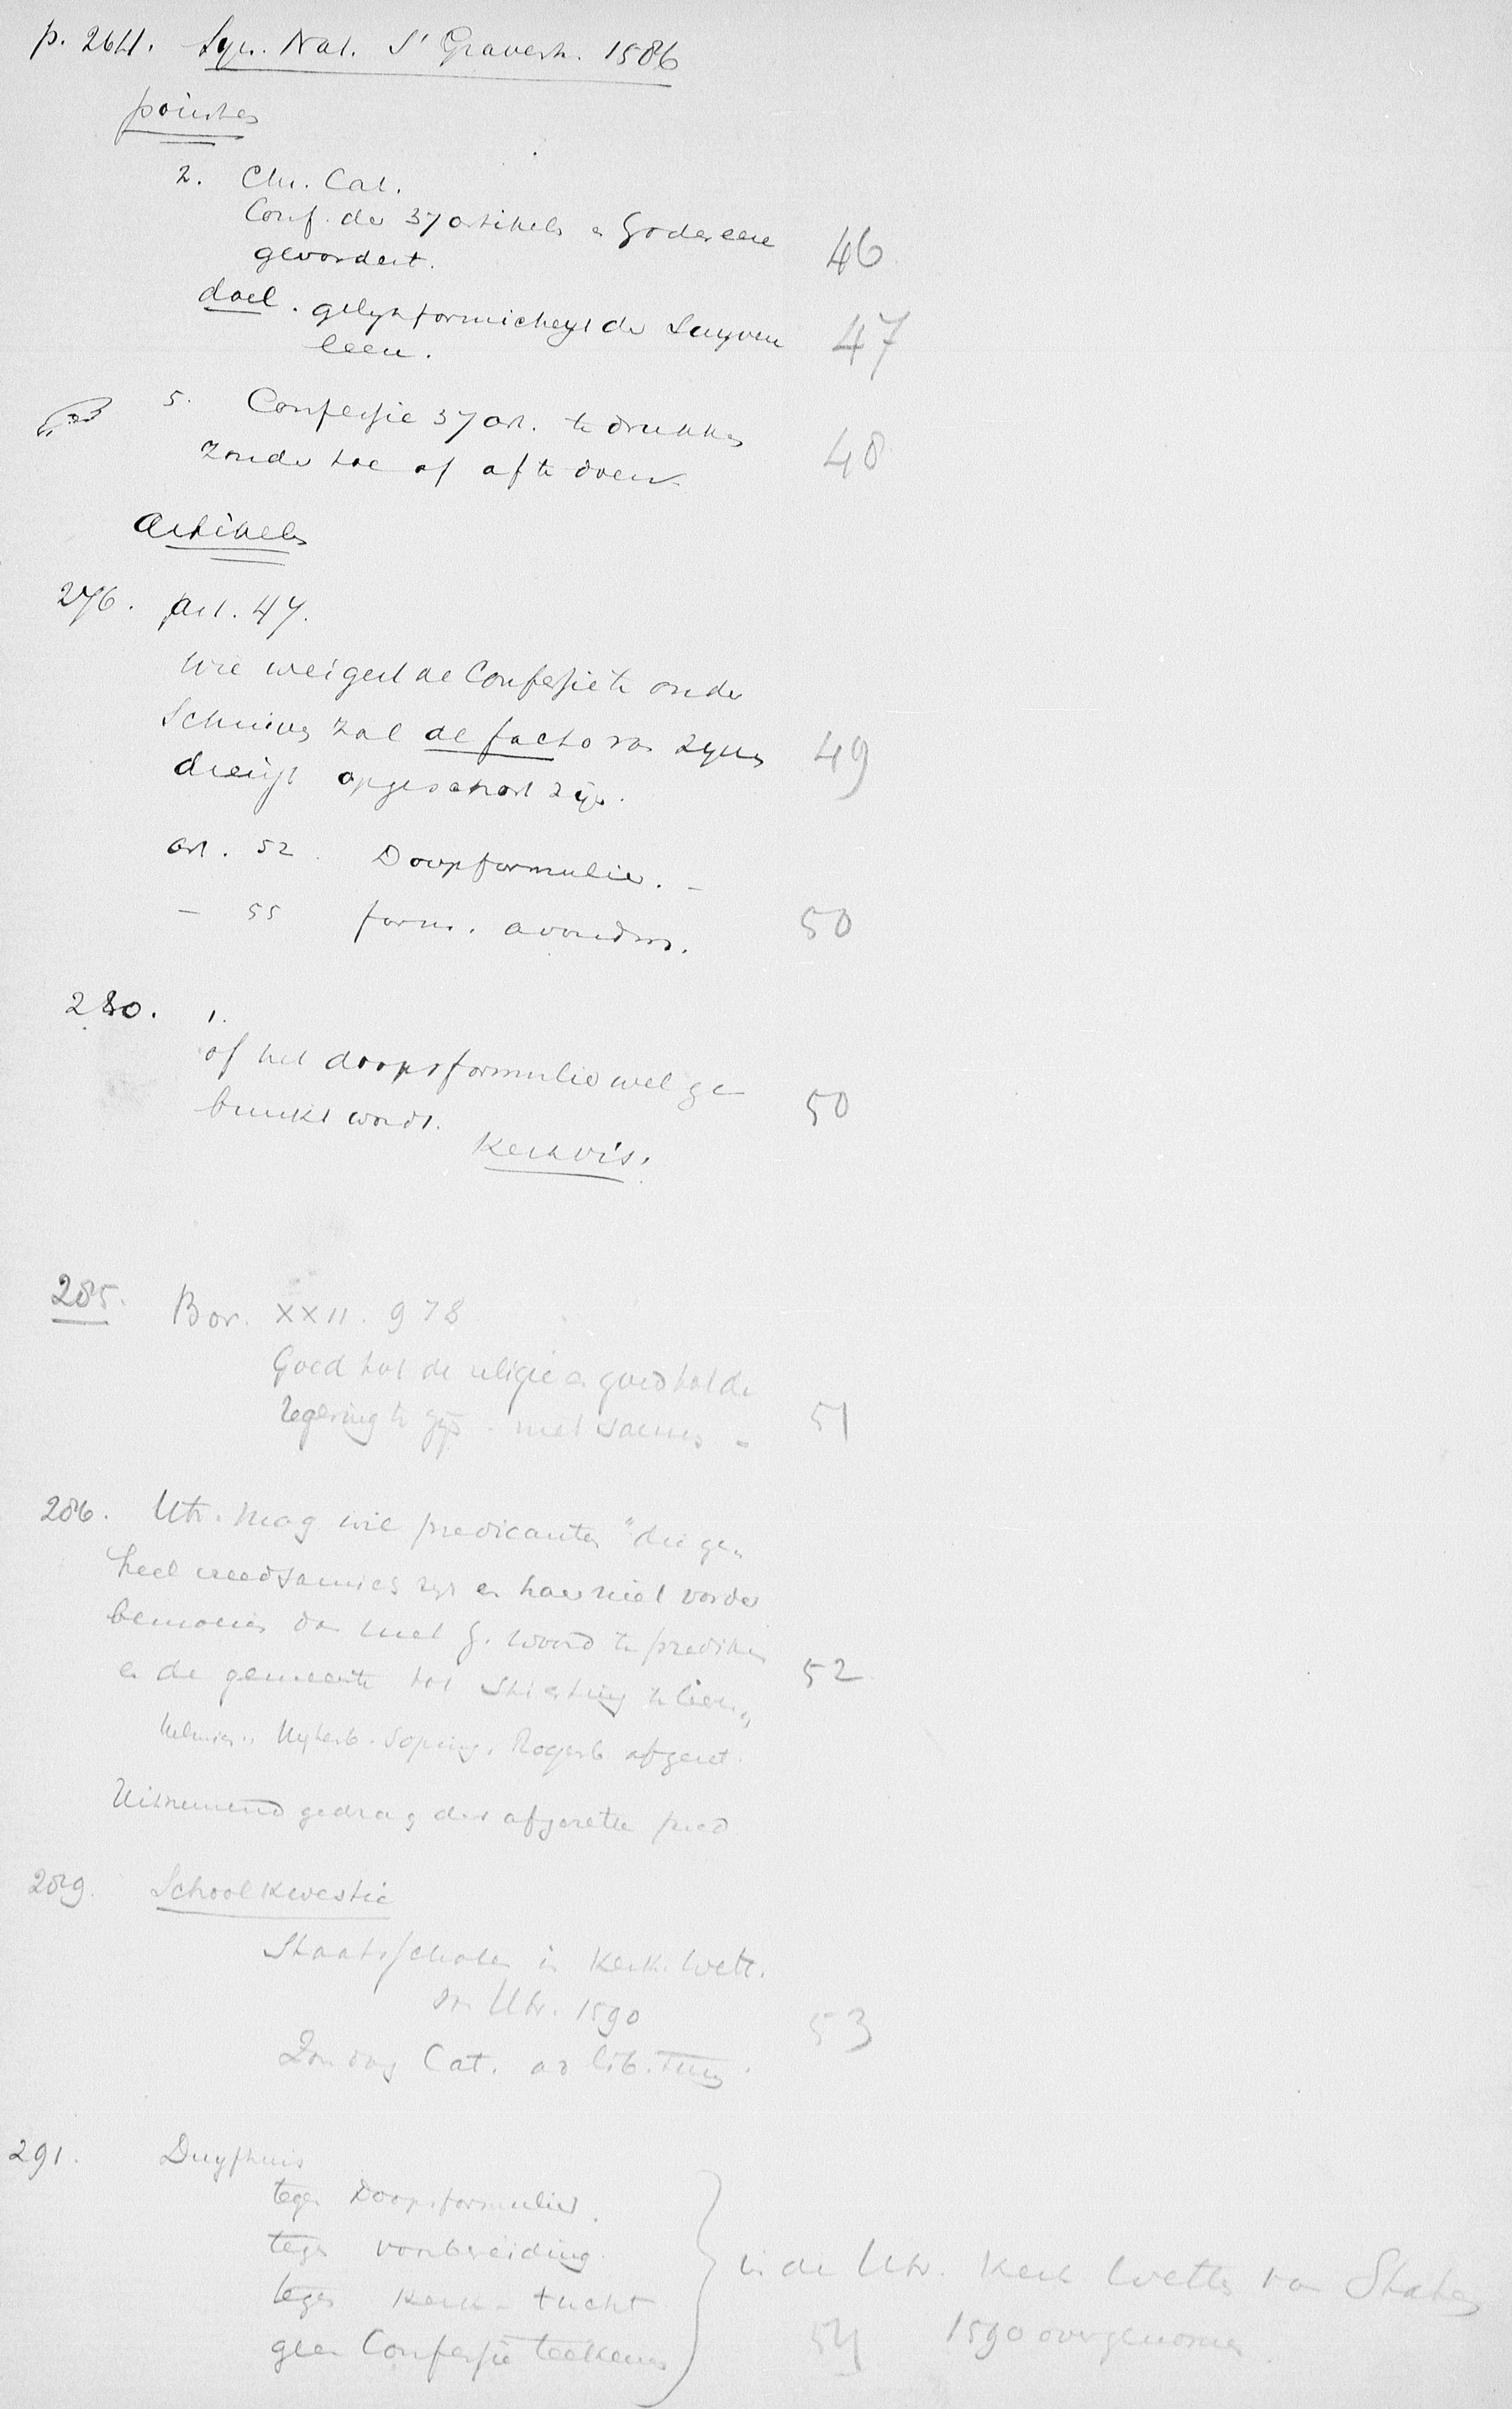 p. 264. Syn. Nat. S' Gravenh. 1586
pointes
2. Chr. Cat.
Conf. der 37 artikels en Godes eere
gevordert. 46
doel. gelijkformicheyt der Suyvere
leere. 47
5. Confessie 37 art. te drukken
zonder toe of af te doen 48
Artikels
276. Art. 47.
Wie weigert de Confessie te onder
schrijven zal de facto van zijnen
dienst opgeschort zijn. 49
art. 52. Doopformulier. -
- 55 form. avondm. 50
280. 1.
of het doopsformulier wel ge
bruikt wordt. 50
Kerkvis.
285. Bor. XXII. 978
Goed tot de religie en goed tot de
regering te zijn - met samen - 51
286. Utr. Mag wil predicanten "die ge-
heel vreedsamich zijn en haer niet vorder
bemoeien dan met G. woord te prediken
en de gemeente tot stichting te leeren" 52
Helmich. Uytenb. Soping. Rogerb afgezet.
Uitnemend gedrag der afgezette pred
289. Schoolkwestie
Staatsscholen in Kerk. Wett.
van Utr. 1590
Zondag Cat. ad libitum 53
291. Duyfhuis
tegen Doopsformulier.
tegen voorbereiding.
tegen Kerk-tucht
geen Confessie teekenen
in de Utr. Kerk Wetten van Staten
54 1590 overgenomen.